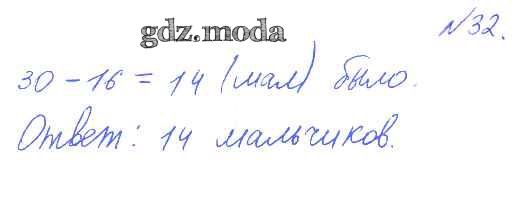 №32.
gdz.moda
30 - 16 = 14 (мал) было.
Ответ: 14 мальчиков.